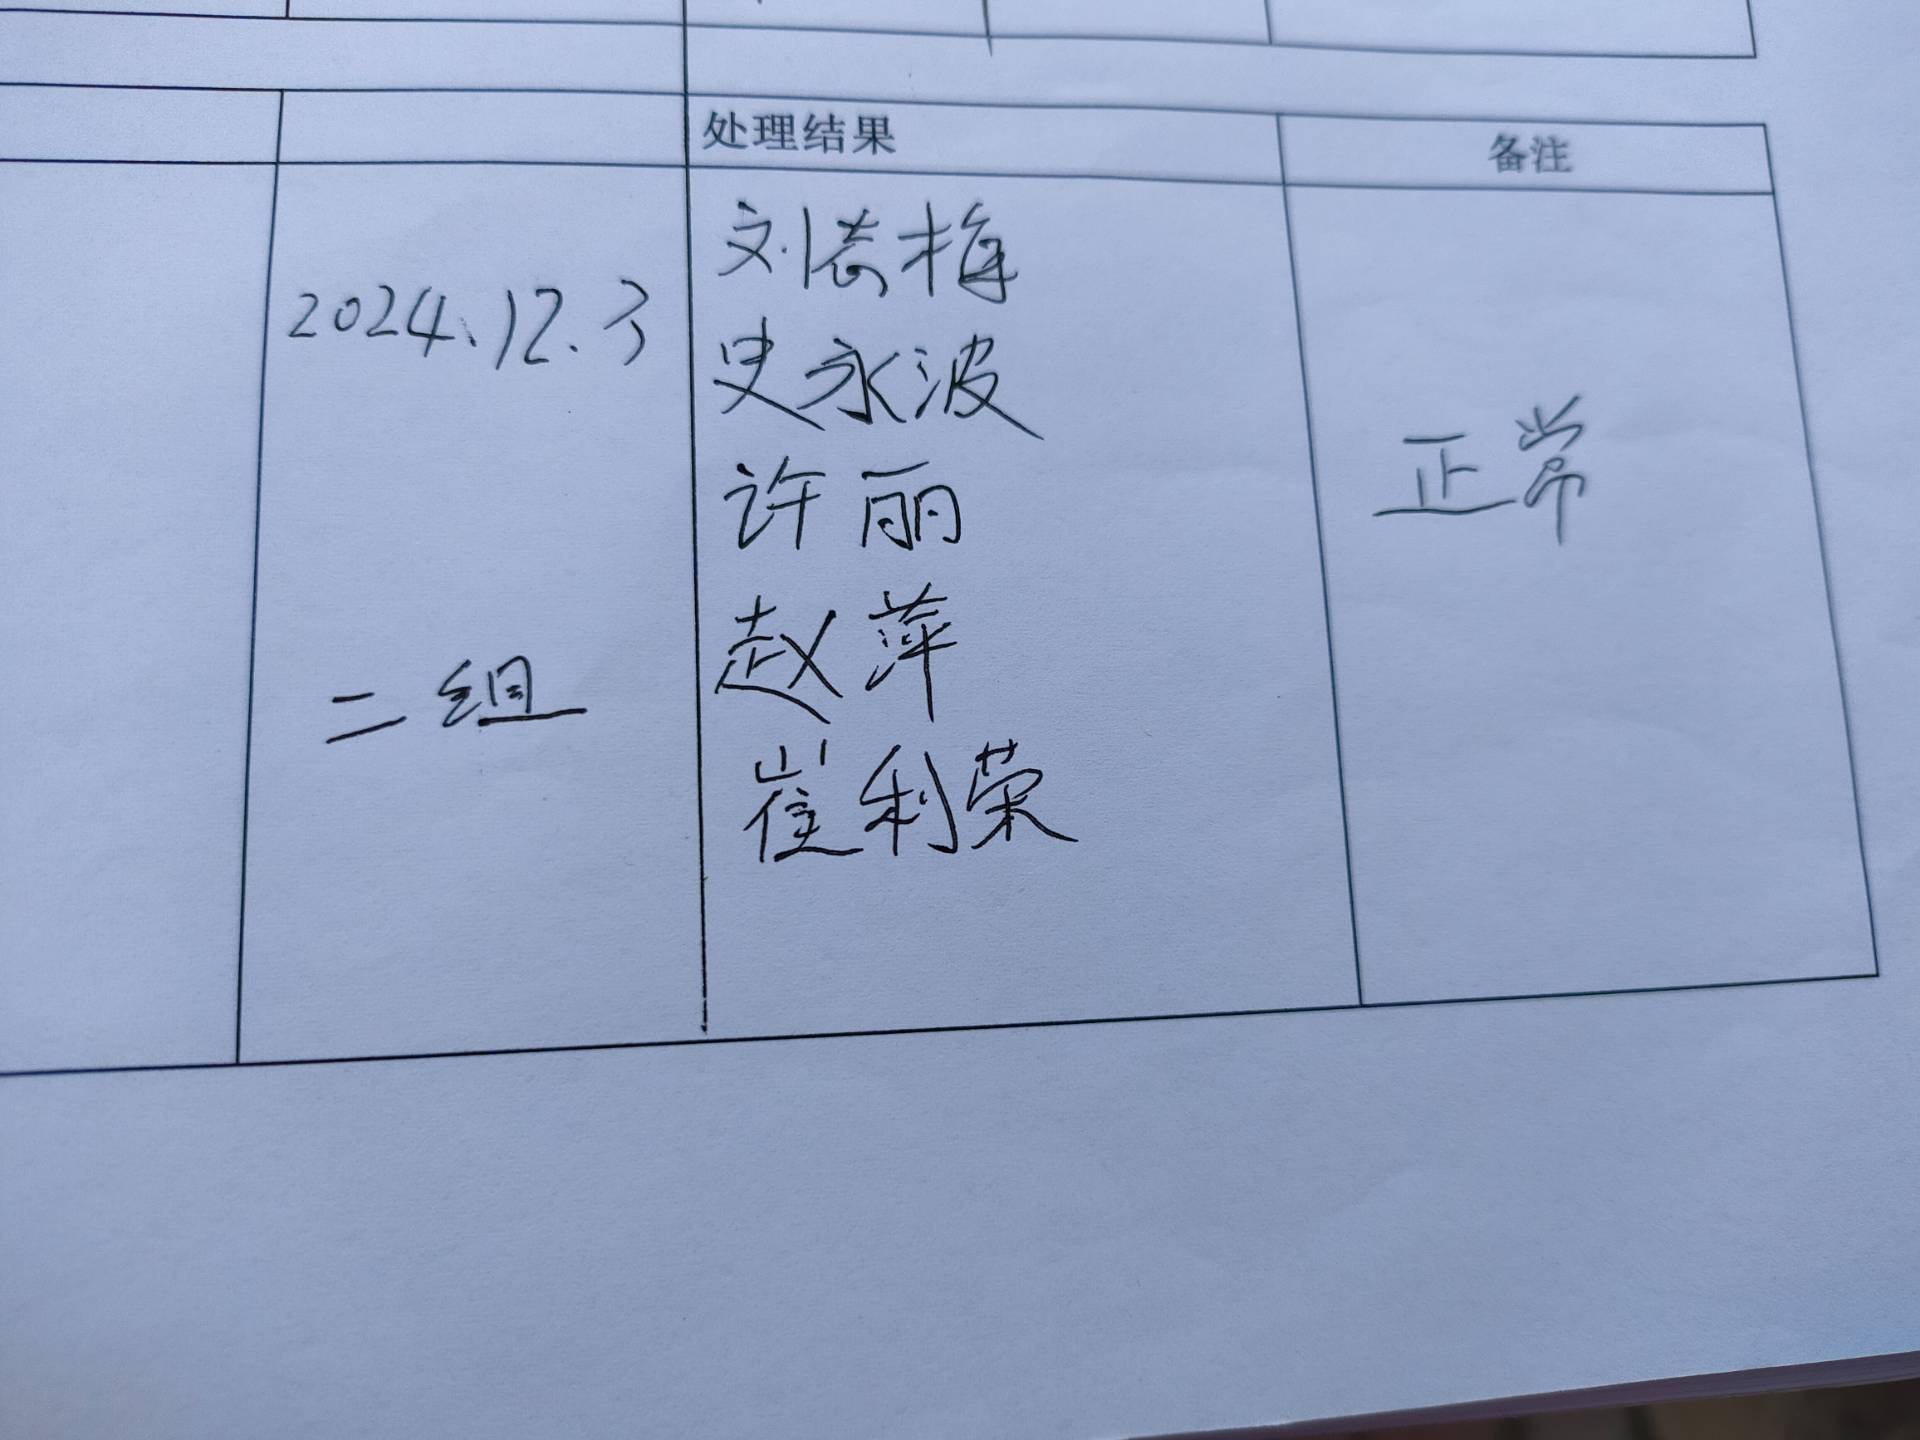 处理结果
备注
2024.12.3
二组
刘 梅
史永波
许丽
赵萍
崔利荣
正常